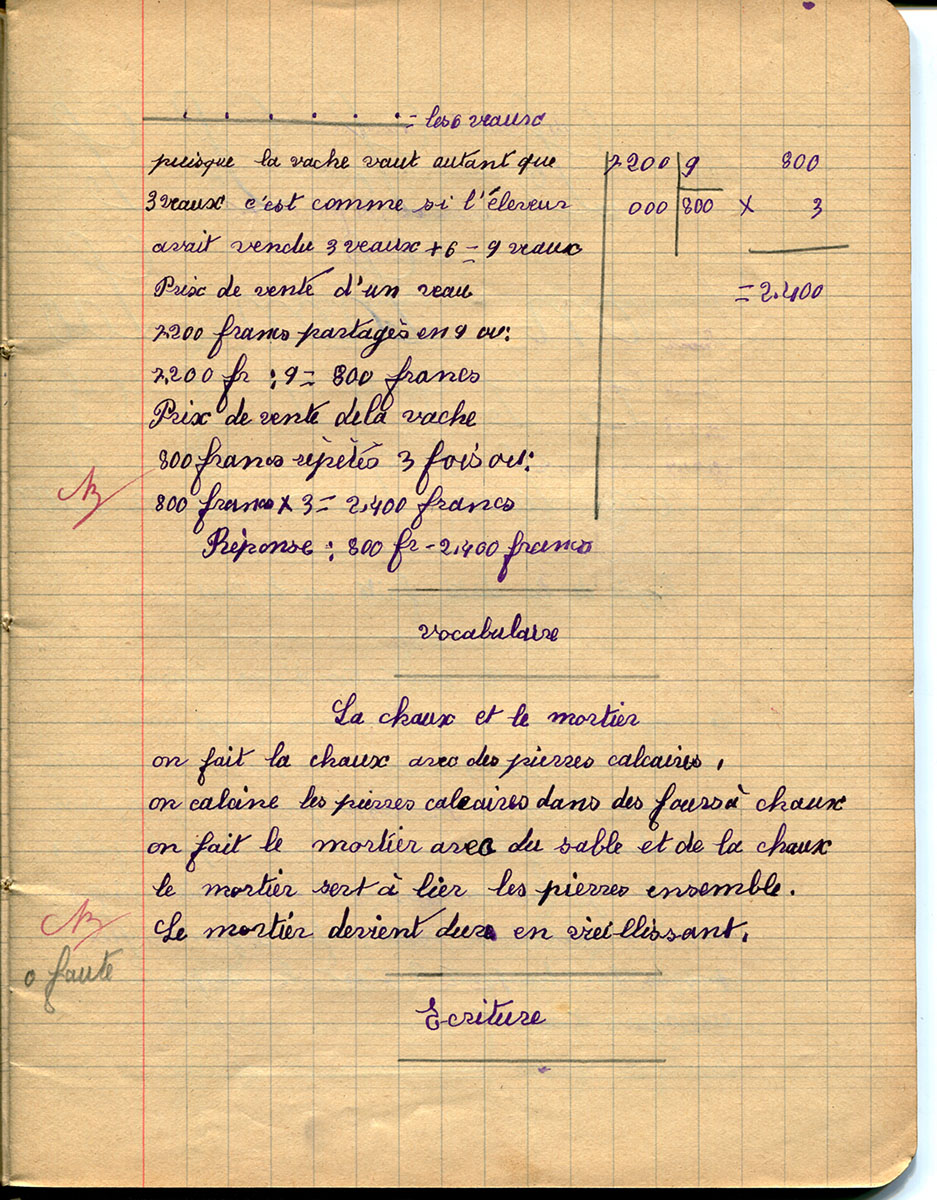 = les 6 veaux
puisque la vache vaut autant que
3 veaux c'est comme si l'éleveur
avait vendu 3 veaux + 6 = 9 veaux
Prix de vente d'un veau
7200 francs partagés en 9 ou:
7,200 fr : 9 = 800 francs
Prix de vente de la vache
800 francs répétés 3 fois ou:
800 francs x 3 = 2.400 francs
Réponse : 800 fr - 2.400 francs
7200 9 800
000 800 x 3
= 2.400
vocabulaire
La chaux et le mortier
on fait la chaux avec des pierres calcaires.
on calcine les pierres calcaires dans des fours à chaux
on fait le mortier avec du sable et de la chaux
le mortier sert à lier les pierres ensemble.
Le mortier devient dur en vieillissant.
0 faute
Ecriture